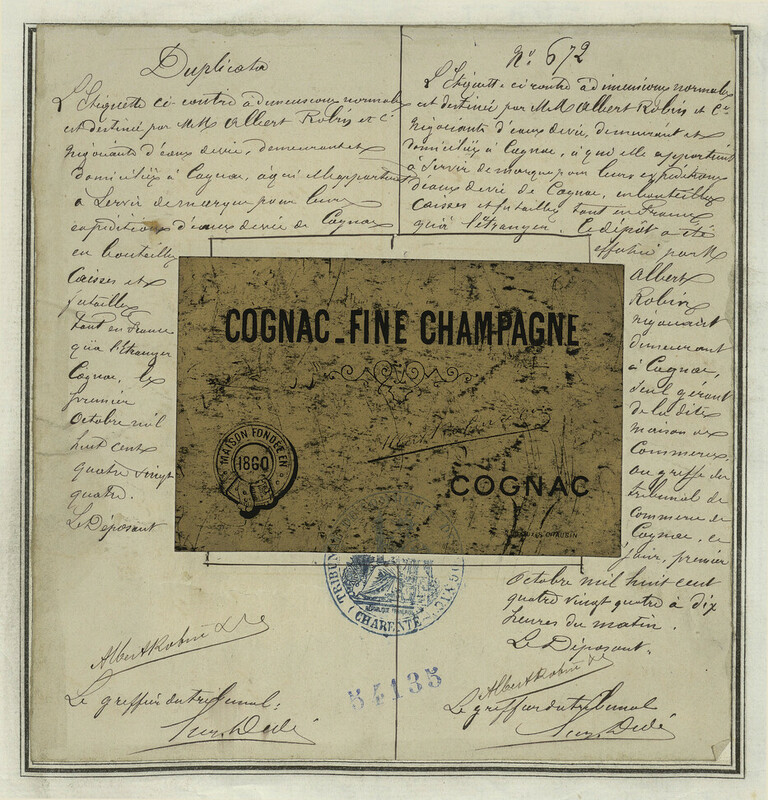 Duplicata
L'Etiquette ci-contre à dimensions normales
est destinée par MM Albert Robin et Cie
négociants d'eaux de vie, demeurant et
domiciliés à Cognac, à qui elle appartient
à servir de marque pour leurs
expéditions d'eaux de vie de Cognac
en bouteilles
caisses et
futailles
tant en France
qu'à l'étranger
Cognac, le
premier
Octobre mil
huit cent
quatre vingt
quatre.
Le Déposant
Albert Robin & Cie
Le greffier du tribunal:
No 672
L'Etiquette ci-contre à dimensions normales
est destinée par MM Albert Robin et Cie
négociants d'eaux de vie, demeurant et
domiciliés à Cognac, à qui elle appartient
à servir de marque pour leurs expéditions
d'eaux de vie de Cognac, en bouteilles
caisses et futailles tant en France
qu'à l'étranger. Ce dépôt a été
effectué par M
Albert
Robin
négociant
demeurant
à Cognac,
seul gérant
de la dite
maison de
Commerce,
au greffe du
tribunal de
Commerce de
Cognac, ce
jour, premier
Octobre mil huit cent
quatre vingt quatre à dix
heures du matin.
Le Déposant.
Albert Robin & Cie
Le greffier du tribunal
COGNAC_FINE CHAMPAGNE
MAISON FONDÉE EN
1860
COGNAC
TRIBUNAL COGNAC
(CHARENTE)
54135